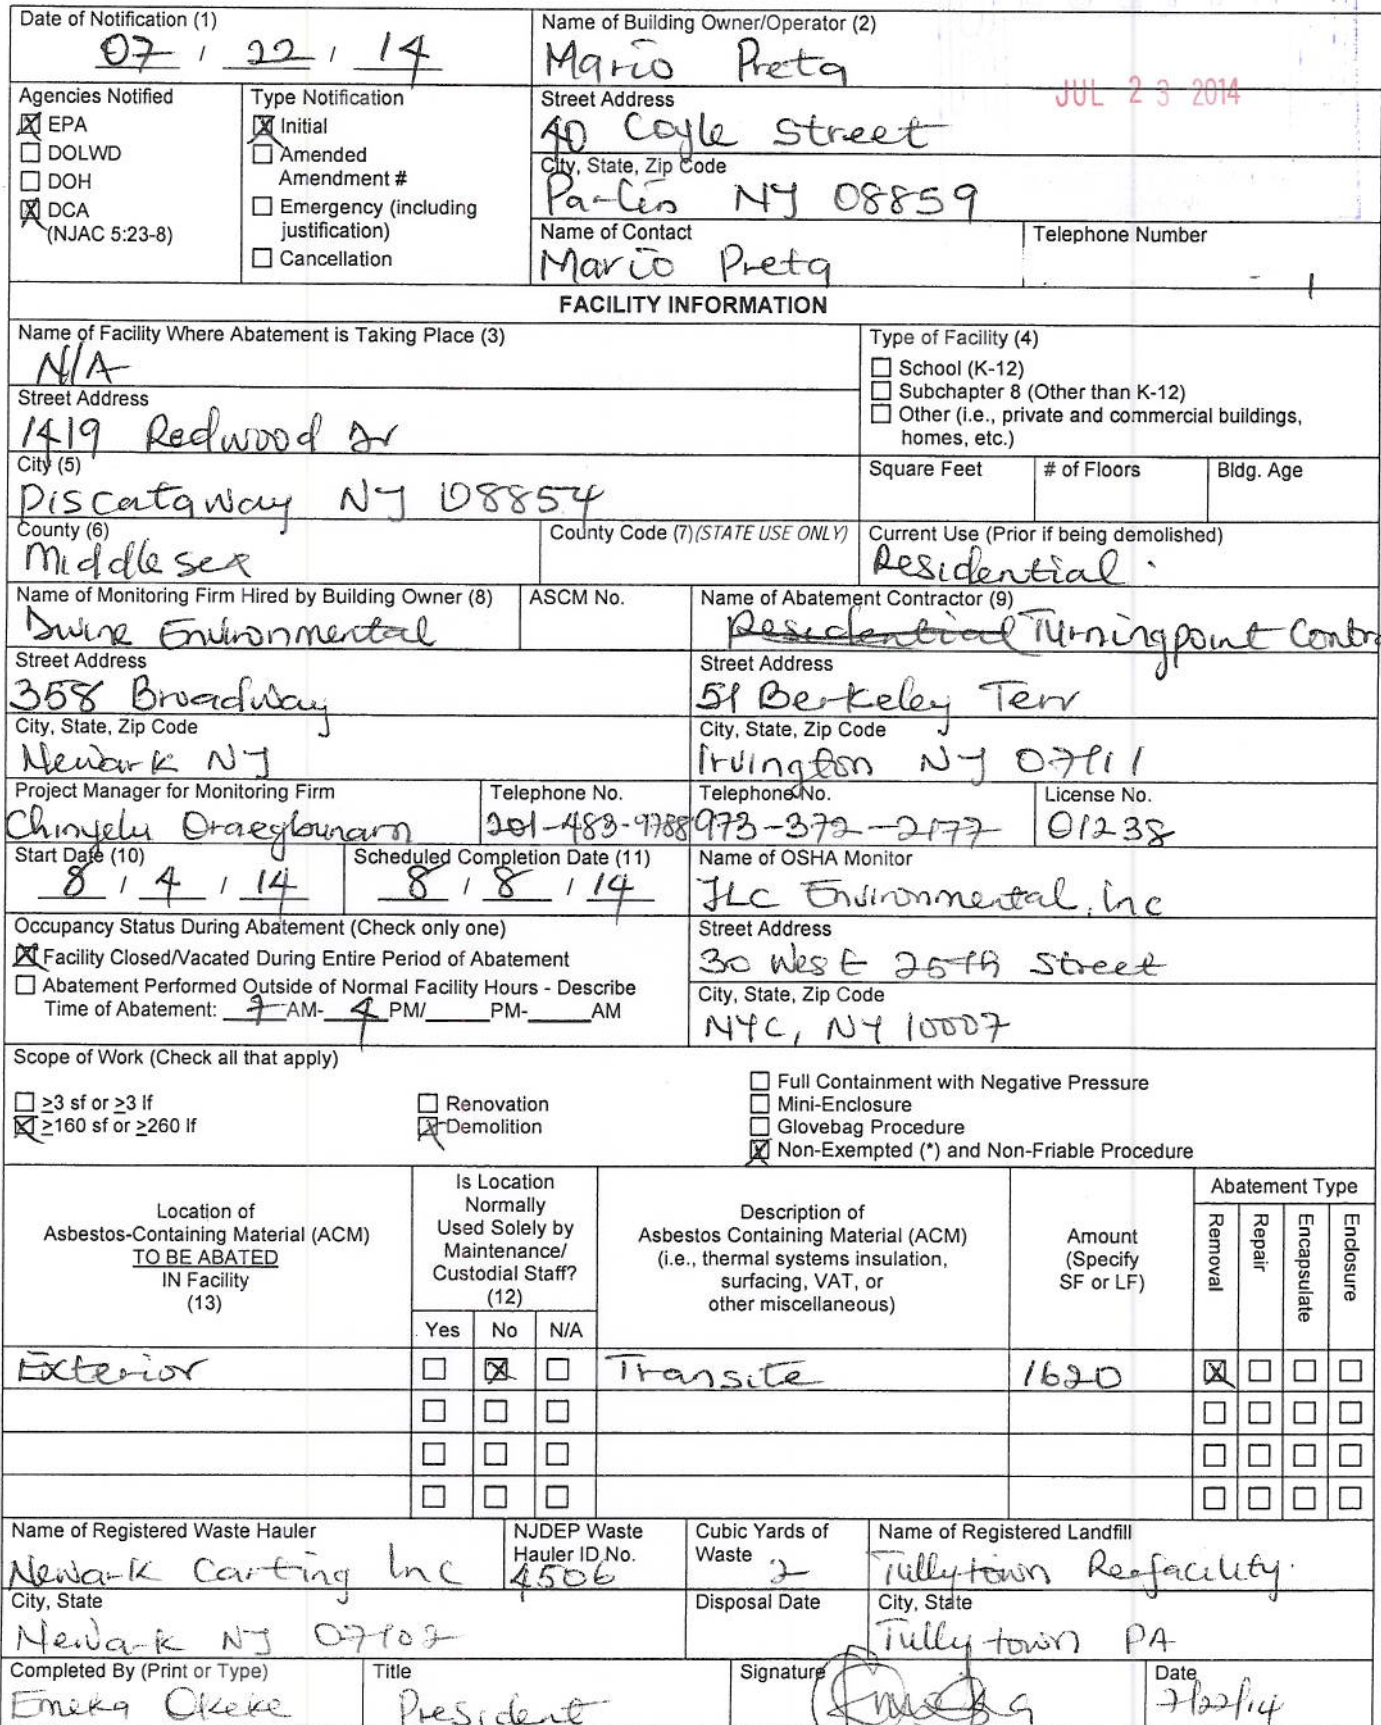 Date of Notification (1)
07 / 22 / 14
Name of Building Owner/Operator (2)
Mario Preta
JUL 23 2014
Agencies Notified
EPA
DOLWD
DOH
DCA
(NJAC 5:23-8)
Type Notification
Initial
Amended
Amendment #
Emergency (including
justification)
Cancellation
Street Address
40 Coyle Street
City, State, Zip Code
NJ 08859
Name of Contact
Mario Preta
Telephone Number
FACILITY INFORMATION
Name of Facility Where Abatement is Taking Place (3)
N/A
Street Address
1419 Redwood Dr
City (5)
Piscataway NJ 08854
Type of Facility (4)
School (K-12)
Subchapter 8 (Other than K-12)
Other (i.e., private and commercial buildings,
homes, etc.)
Square Feet
# of Floors
Bldg. Age
County (6)
Middlesex
County Code (7) (STATE USE ONLY)
Current Use (Prior if being demolished)
Residential
Name of Monitoring Firm Hired by Building Owner (8)
Environmental
ASCM No.
Name of Abatement Contractor (9)
Residential Turningpoint Contr
Street Address
358 Broadway
Street Address
51 Berkeley Terr
City, State, Zip Code
Newark NJ
City, State, Zip Code
Irvington NJ 07111
Project Manager for Monitoring Firm
Chinyelu Oraegbunam
Telephone No.
201-483-9788
Telephone No.
973-372-2177
License No.
01238
Start Date (10)
8 / 4 / 14
Scheduled Completion Date (11)
8 / 8 / 14
Name of OSHA Monitor
JLC Environmental, Inc
Occupancy Status During Abatement (Check only one)
Facility Closed/Vacated During Entire Period of Abatement
Abatement Performed Outside of Normal Facility Hours - Describe
Time of Abatement: 7 AM- 4 PM/ PM- AM
Street Address
30 West 26th Street
City, State, Zip Code
NYC, NY 10007
Scope of Work (Check all that apply)
≥3 sf or ≥3 lf
≥160 sf or ≥260 lf
Renovation
Demolition
Full Containment with Negative Pressure
Mini-Enclosure
Glovebag Procedure
Non-Exempted (*) and Non-Friable Procedure
Location of
Asbestos-Containing Material (ACM)
TO BE ABATED
IN Facility
(13)
Is Location
Normally
Used Solely by
Maintenance/
Custodial Staff?
(12)
Yes No N/A
Description of
Asbestos Containing Material (ACM)
(i.e., thermal systems insulation,
surfacing, VAT, or
other miscellaneous)
Amount
(Specify
SF or LF)
Abatement Type
Removal
Repair
Encapsulate
Enclosure
Exterior Transite 1620
Name of Registered Waste Hauler
Newark Carting Inc
NJDEP Waste
Hauler ID No.
4506
Cubic Yards of
Waste 2
Name of Registered Landfill
Tullytown Refacility
City, State
Newark NJ 07102
Disposal Date
City, State
Tullytown PA
Completed By (Print or Type)
Emeka Okeke
Title
President
Signature
Date
7/22/14